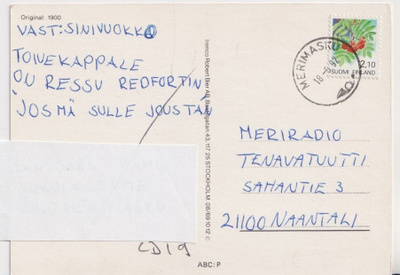 Original: 1900
VAST: SINIVUOKKO
TOIVEKAPPALE
OU RESSU REDFORTIN
"JOSMÄ SULLE JOUSTAN
CD 19
Ireco Robert Bier AB, 117 25 STOCKHOLM 08/69 10 12
ABC: P
MERIMASKU
SUOMI FINLAND
2,10
MERIRADIO
TENAVATUUTTI
SAMANTIE 3
21100 NAANTALI